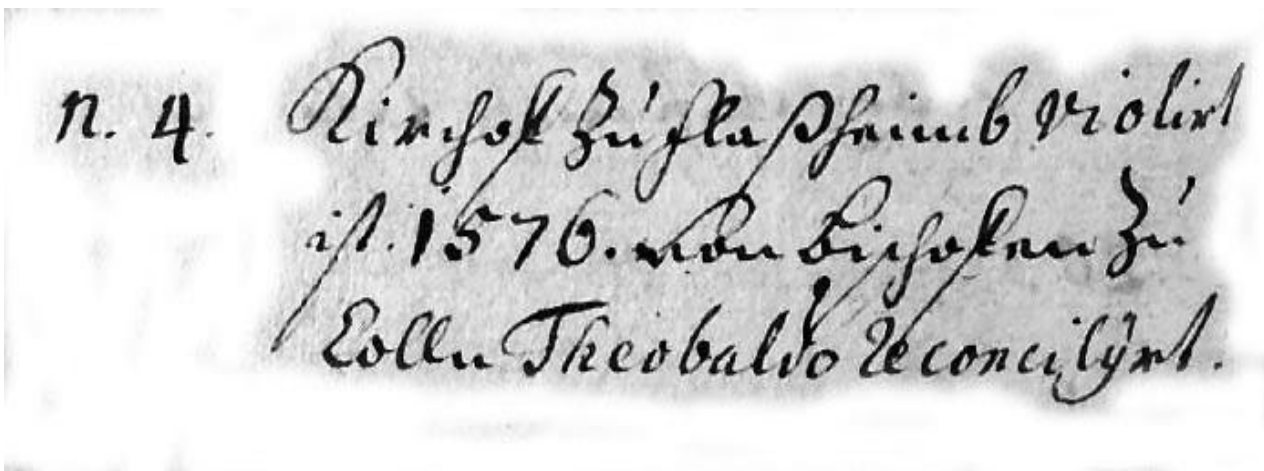 n. 4. Kirchoff Zu Flaßheimb violirt
ist. 1576. von Bischoffen Zu
Cölln Theobaldo reconcilÿrt.